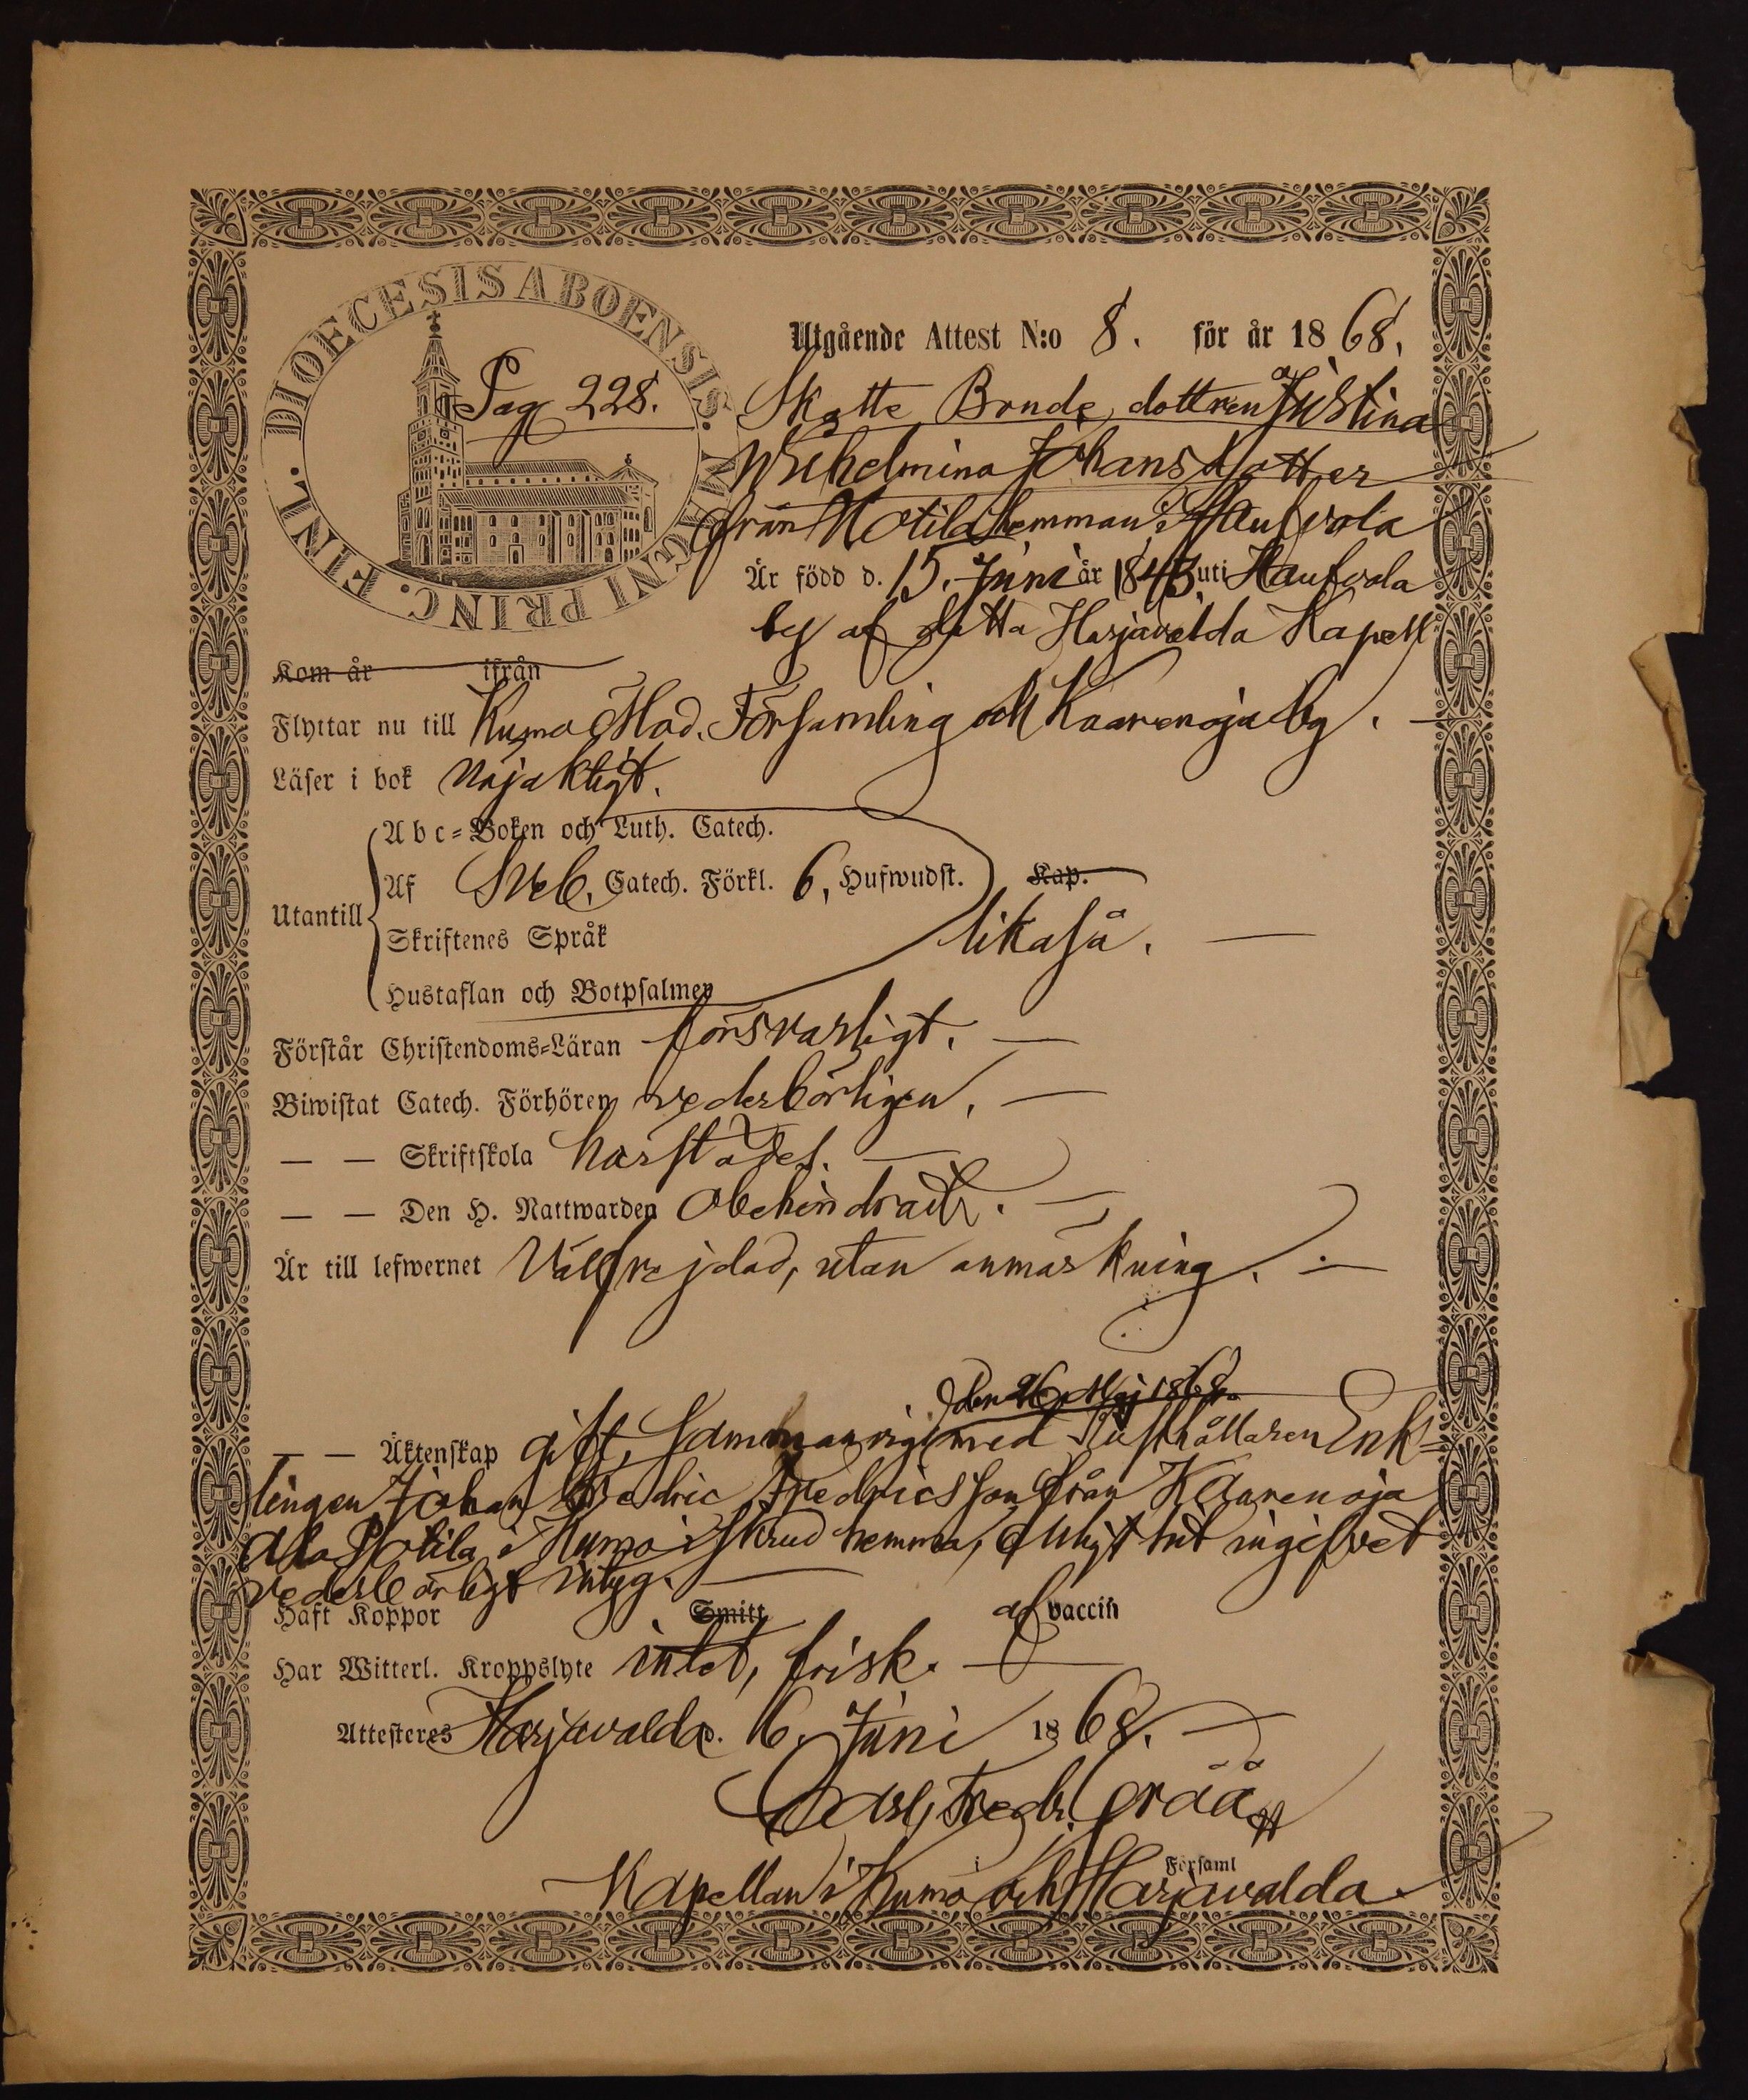 DIOECESIS ABOENSIS. MAGNI PRINC. FINL.
Utgående Attest N:o 8. för år 1868.
Pag 228.
Skatte Bonde dottren Justina
Wilhelmina Johansdotter
från Motila hemman i Haufvola
Är född d. 15. Juni år 1843. uti Haufvola
by af detta Harjavalda Kapell
Kom år ifrån
Flyttar nu till Kumo Mod. Församling och Kaarenoja by.
Läser i bok Nöjaktigt.
Utantill
Abc-Boken och Luth. Catech.
Af Sveb. Catech. Förkl. 6, Hufwudst. Kap.
Skriftenes Språk likaså.
Hustaflan och Botpsalmen
Förstår Christendoms-Läran försvarligt.
Biwistat Catech. Förhören vederbörligen.
— — Skriftskola härstädes.
— — Den H. Nattwarden Obehindrad.
Är till lefwernet Välfrejdad, utan anmärkning.
den 26 Maj 1868
— — Äktenskap gift, sammanvigd med Rusthållaren Enk-
lingen Johan Fredric Fredricsson från Kaarenoja
Ala i Kumo hemman, enligt hit ingifvet
vederbörligt intyg.
Haft Koppor Smitt af vaccin
Har Witterl. Kroppslyte intet, frisk.
Attesteres Harjavalda. 6. Juni 1868.
Fredr. Grää
Kapellan i Kumo och Harjavalda
i Församl